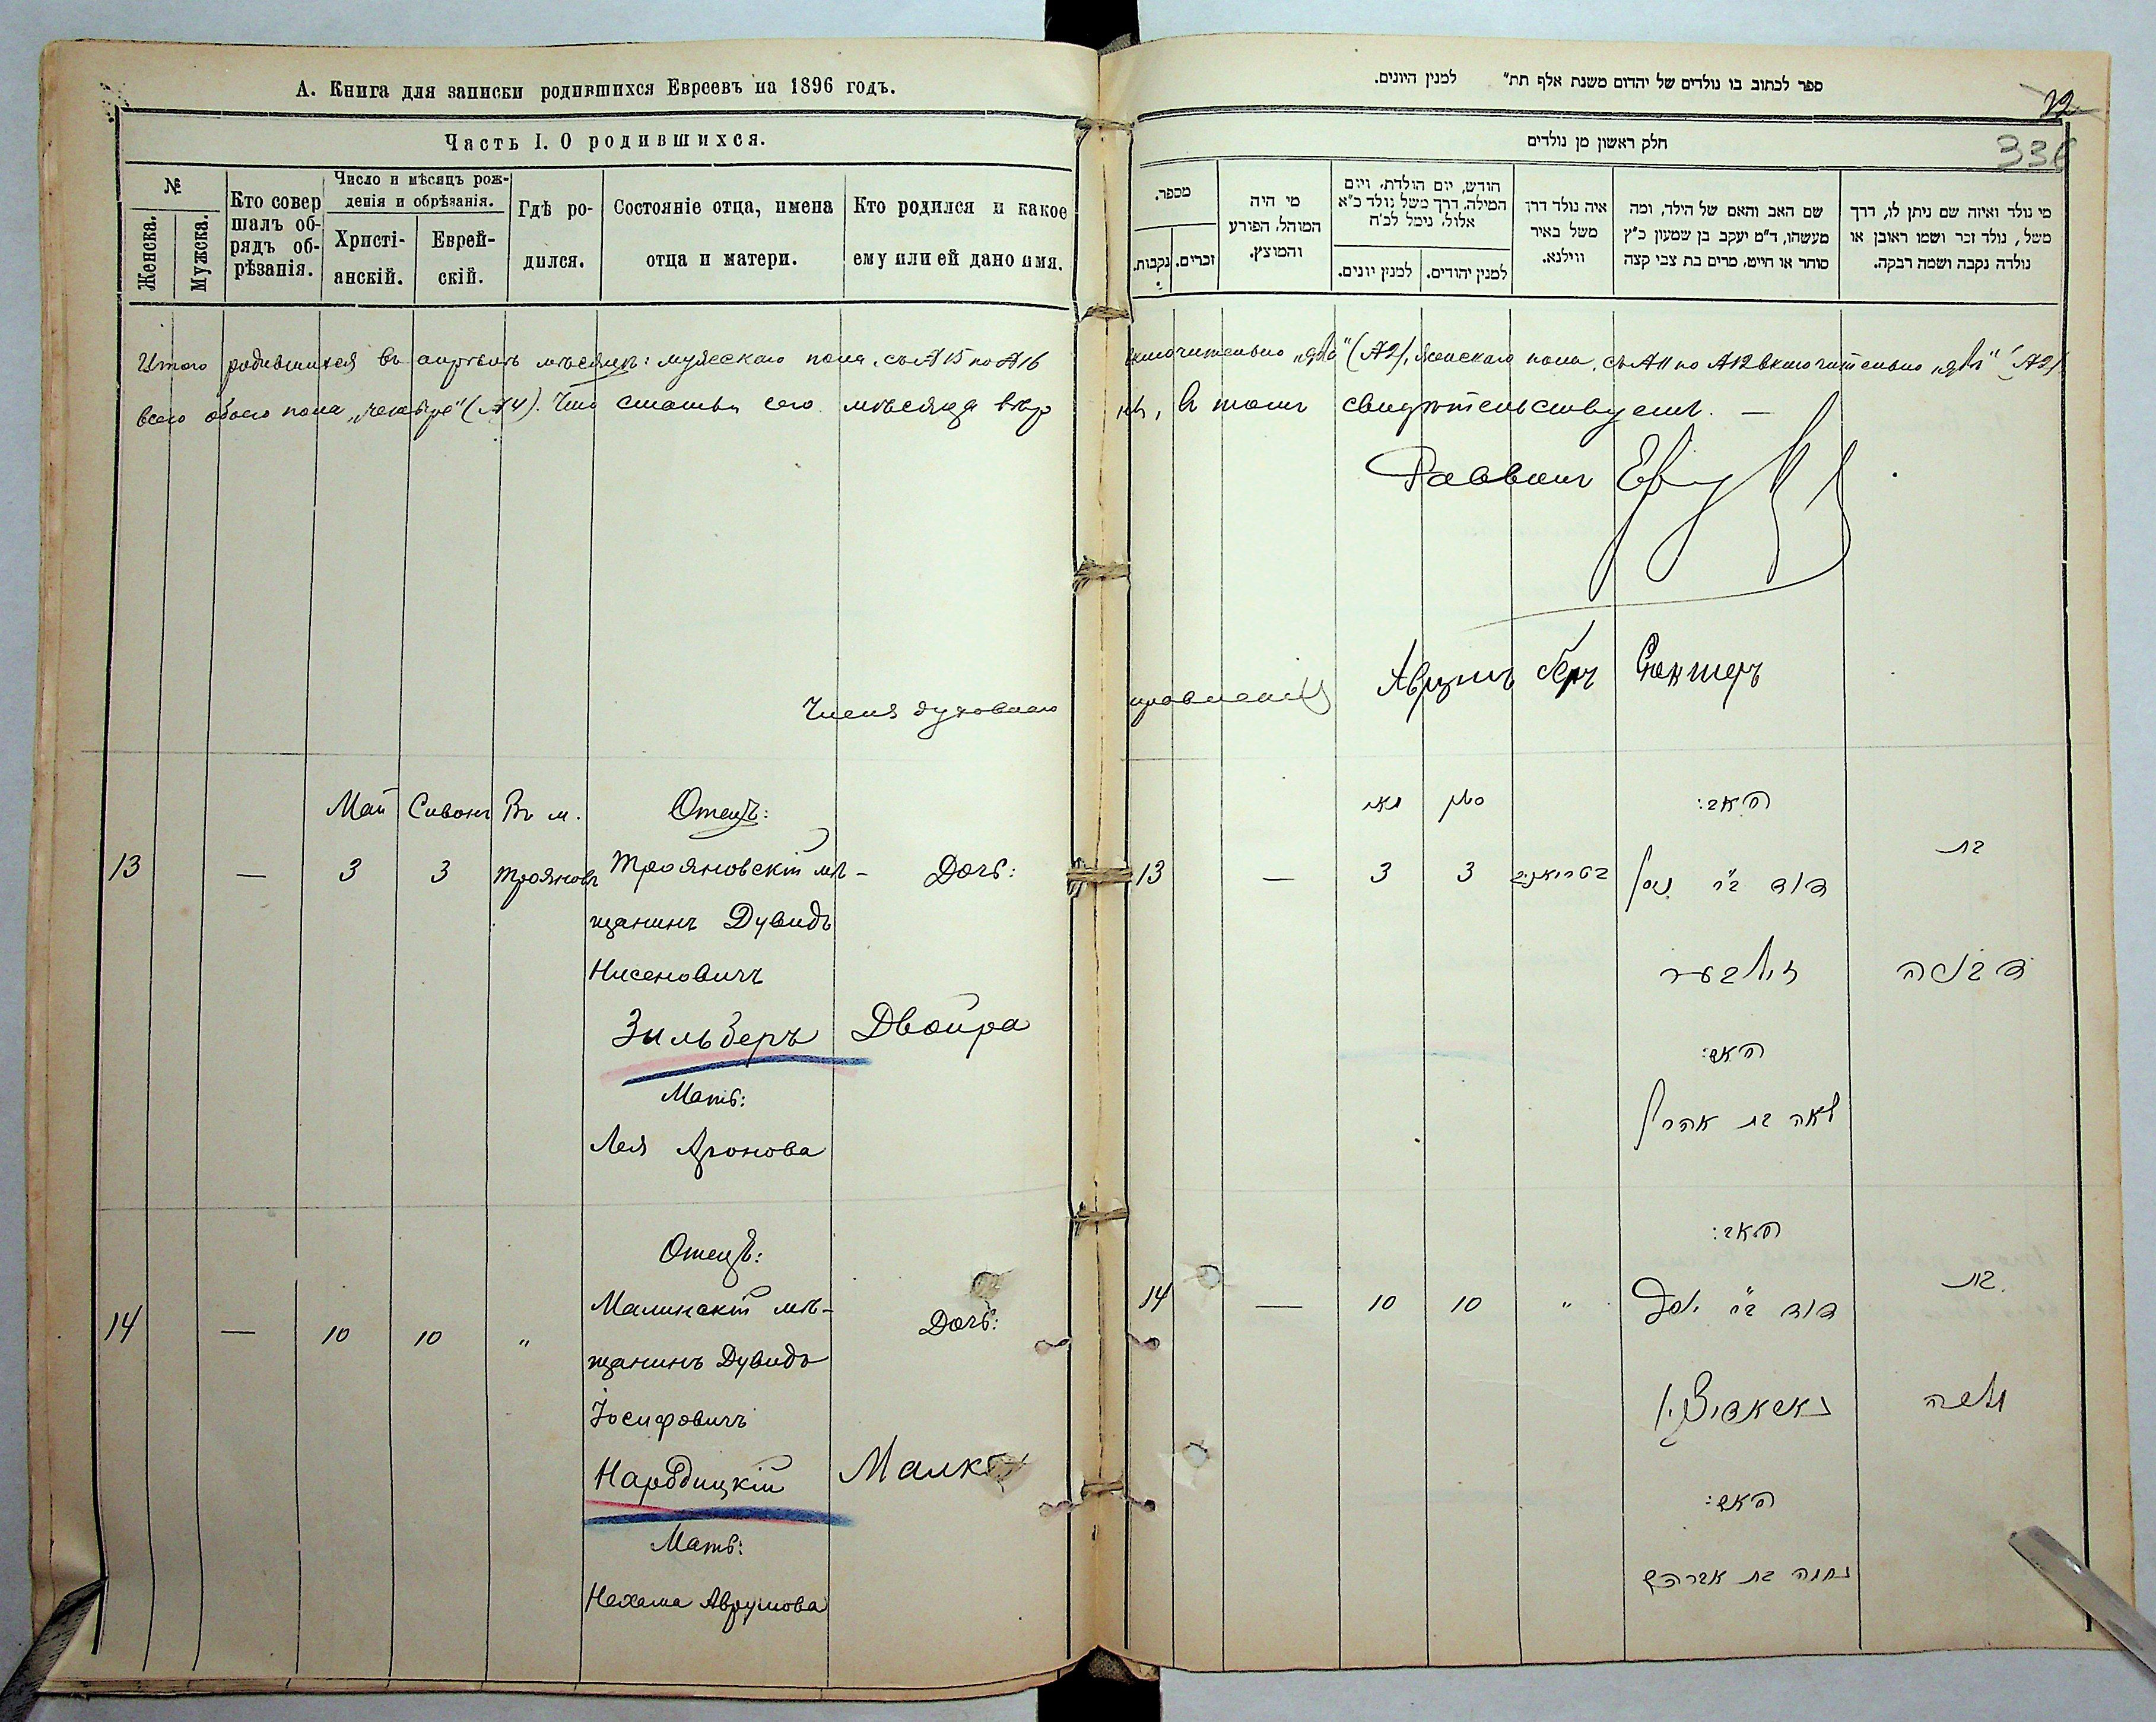 А. Книга для записки родившихся Евреевъ на 1896 годъ.
Часть I. О родившихся.
№
Женска.
Мужска.
Кто совер
шалъ об-
рядъ об-
рѣзанія.
Число и мѣсяцъ рож-
денія и обрѣзанія.
Христі-
анскій.
Еврей-
скій.
Гдѣ ро-
дился.
Состояніе отца, имена
отца и матери.
Кто родился и какое
ему или ей дано имя.
Итого родившихся въ апрѣлѣ мѣсяцѣ: мужескаго пола, съ № 15 по № 16
всего обоего пола „четыре" (№ 4). Что статьи сего мѣсяца вѣр
Члены духовнаго
Май Сивонъ Въ м. Отецъ:
13 — 3 3 Трояновъ Трояновскій мѣ- Дочь:
щанинъ Дувидъ
Нисеновичъ
Зильберъ Двойра
Мать:
Лея Аронова
Отецъ:
14 — 10 10 „ Малинскій мѣ- Дочь:
щанинъ Дувидъ
Іосифовичъ
Народицкій Малка
Мать:
Нехама Аврумова
ספר לכתוב בו נולדים של יהדום משנת אלף תת״ למנין היונים.
22
336
חלק ראשון מן נולדים
מספר.
נקבות.
זכרים.
מי היה
המוהל, הפורע
והמוצץ.
חודש, יום הולדת, ויום
המילה, דרך משל נולד כ״א
אלול, נימל לכ״ח
למנין יונים.
למנין יהודים.
איה נולד דרך
משל באיר
ווילנא.
שם האב והאם של הילד, ומה
מעשהו, ד״מ יעקב בן שמעון כ״ץ
סוחר או חייט, מרים בת צבי קצה
מי נולד ואיזה שם ניתן לו, דרך
משל, נולד זכר ושמו ראובן או
נולדה נקבה ושמה רבקה.
включительно „два" (№ 2), женскаго пола, съ № 11 по № 12 включительно „два" (№ 2)
ны, въ томъ свидѣтельствуемъ. —
Раввинъ
правленія Аврумъ Беръ
מאי סיון האב:
13 — 3 3 בטריאניב דוד ב״ר ניסן בת
זילבער דבורה
האם:
לאה בת אהרן
האב:
14 — 10 10 „ דוד ב״ר יוסף בת
נאראדיצקי מלכה
האם:
נחמה בת אברהם